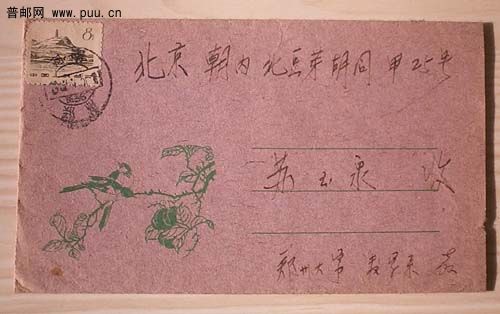 普邮网 www.puu.cn
8分
中国
北京 朝内 北豆芽胡同 甲25号
苏玉泉 收
郑州大学 数学系